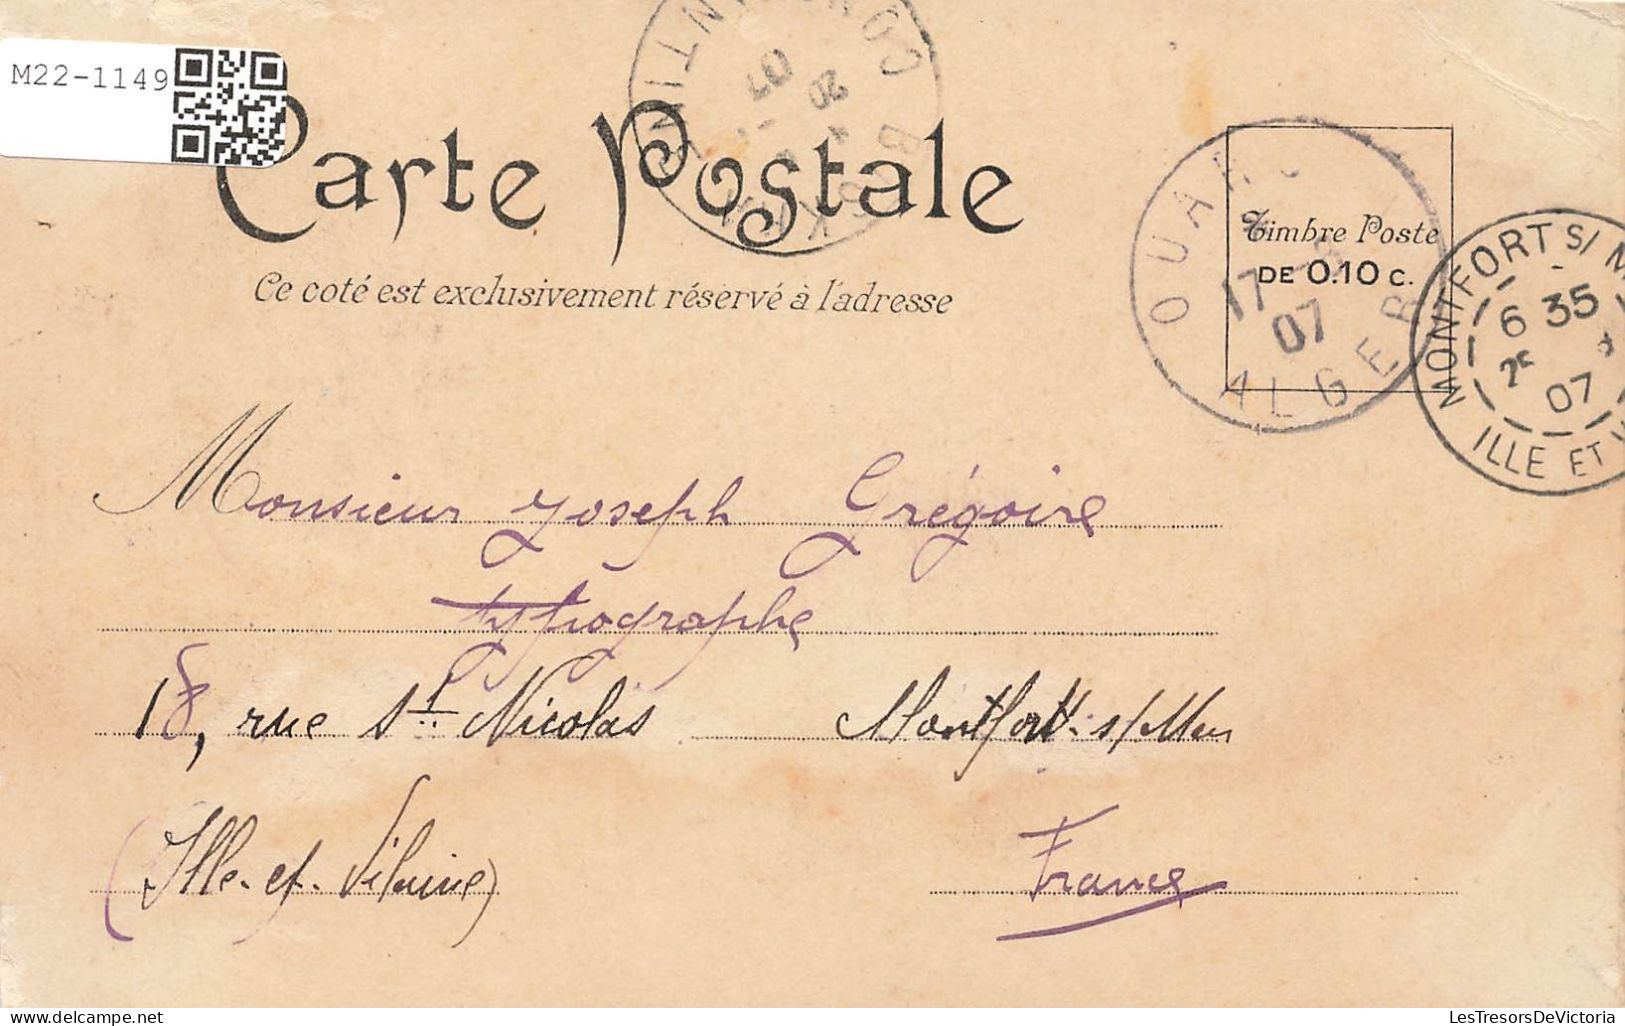 M22-1149
Carte Postale
Ce coté est exclusivement réservé à l'adresse
CONSTANTINE
20
07
OUAR
17
07
ALGER
Timbre Poste
DE 0.10 c.
MONTFORT S/ M
6 35
07
ILLE ET V
Monsieur Joseph Grégoire
typographe
18, rue St Nicolas Montfort-s/Meu
(Ille-et-Vilaine) France
LesTresorsDeVictoria